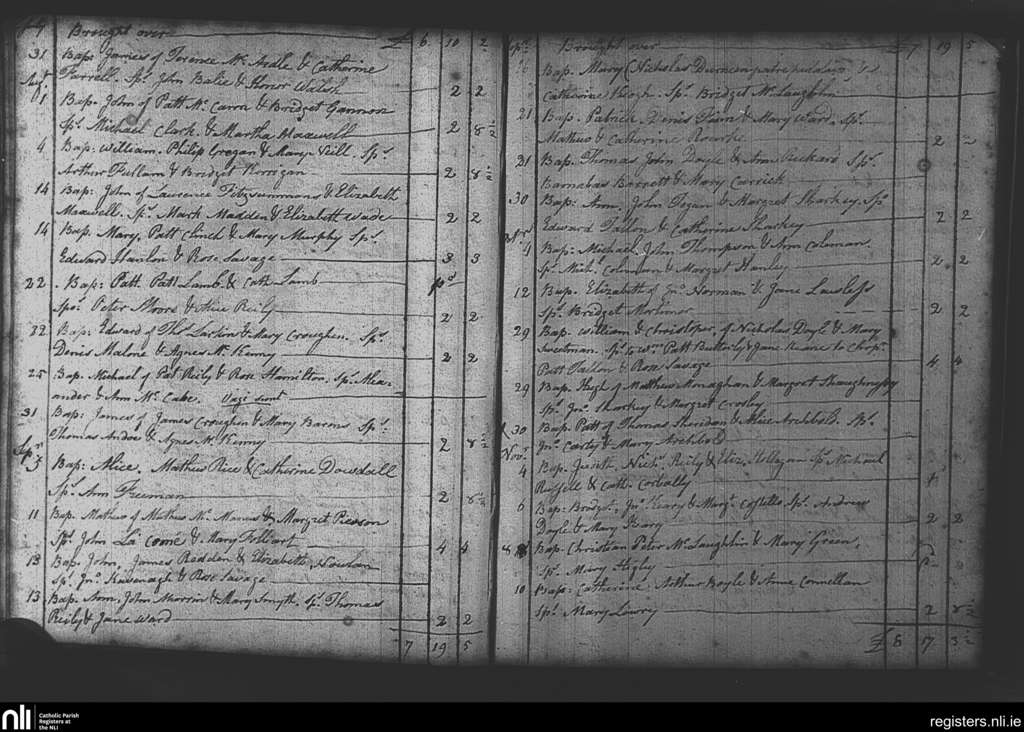 Brought over £ 6 10 2
31 Bap. James of Terence Mc Ardle & Catherine
Augt. Farrell. Sps. John Balie & Honor Walsh 2 2
1 Bap. John of Patt Mc. Cann & Bridget Gannon
Sps. Michael Clark. & Martha Maxwell 2 8½
4 Bap: William. Philip Grogan & Mary Neill. Sps.
Arthur Fullam & Bridget 2 8½
14 Bap: John of Laurence Fitzsummons & Elizabeth
Maxwell. Sps. Mark Madden & Elizabeth Wade 2 2
14 Bap. Mary. Patt Clinch & Mary Murphy Sps.
Edward Hanlon & Rose Savage 3 3
22 Bap: Patt. Patt Lamb & Cath. Lamb
Sps. Peter Moore & Alice Reily 2 2
22 Bap: Edward of Thos. Larkin & Mary Croughen. Sps.
Denis Malone & Agnes Mc. Kenny 2 2
25 Bap. Michael of Pat Reily & Rose Hamilton. Sps. Alex-
ander & Ann Mc. Cabe. Vagi sunt
31 Bap: James of James Croughin & Mary Barons Sps.
Thomas Andoe & Agnes Mc Kenny 2 8½
Spr.
5 Bap: Alice. Mathus Rice & Catherine Dowdall
Sps. Ann Freeman 2 8½
11 Bap: Mathus of Mathus Mc. Manus & Margret Pierson
Sps. John La Come & Mary 4 4
13 Bap. John. James Redden & Elizabeth
Sps. Jno. Kavenagh & Rose Savage
13 Bap. Ann. John Morrin & Mary Smyth. Sps. Thomas
Reily & Jane Ward 2 2
7 19 5
Brought over £7 19 5
Bap. Mary (Nicholas
Catherine Keogh. Sps. Bridget Mc Laughlin
21 Bap. Patrick. Denis & Mary Ward. Sps.
Mathus & Catherine Rourke 2 2
21 Bap. Thomas John Doyle & Ann Pickard Sps.
Barnabas Barnett & Mary Carrick
30 Bap: Ann. John Fegan & Margret Sharkey. Sps
Edward Fallon & Catherine Sharkey 2 2
4 Bap: Michael. John Thompson & Ann Coleman.
Sps. Michl. Coleman & Margret Hanley 2 2
12 Bap. Elizabeth of Jno. Norman & Jane Lawless
Sps. Bridget Mortimer 2 2
29 Bap. William & Christopher. of Nicholas Doyle & Mary
Sweetman. Sps. to Wm. Patt Butterly & Jane Keane to Chrisr.
Patt Fallon & Rose Savage 4 4
29 Bap. Hugh of Matthew Monaghan & Margret Shaughnessy
Sps. Jno. Sharkey & Margret Crosby
30 Bap. Patt of Thomas Sheridan & Alice Archbold. Sps.
Jno. Carty & Mary Archbold
Novr.
4 Bap. Judith. Nichs. Reily & Eliz. Sps. Michael
Russell & Cath. Corbally
6 Bap: Bridget. Jno. Geary & Margt. Costello Sps. Andrew
Doyle & Mary Geary 2 2
8 Bap: Christian Peter Mc Laughlin & Mary Green.
Sps. Mary Higly
10 Bap: Catherine. Arthur Boyle & Anne Connellan
Sps. Mary Lawry 2 8½
£ 8 17 3½
nli
Catholic Parish
Registers at
the NLI
registers.nli.ie